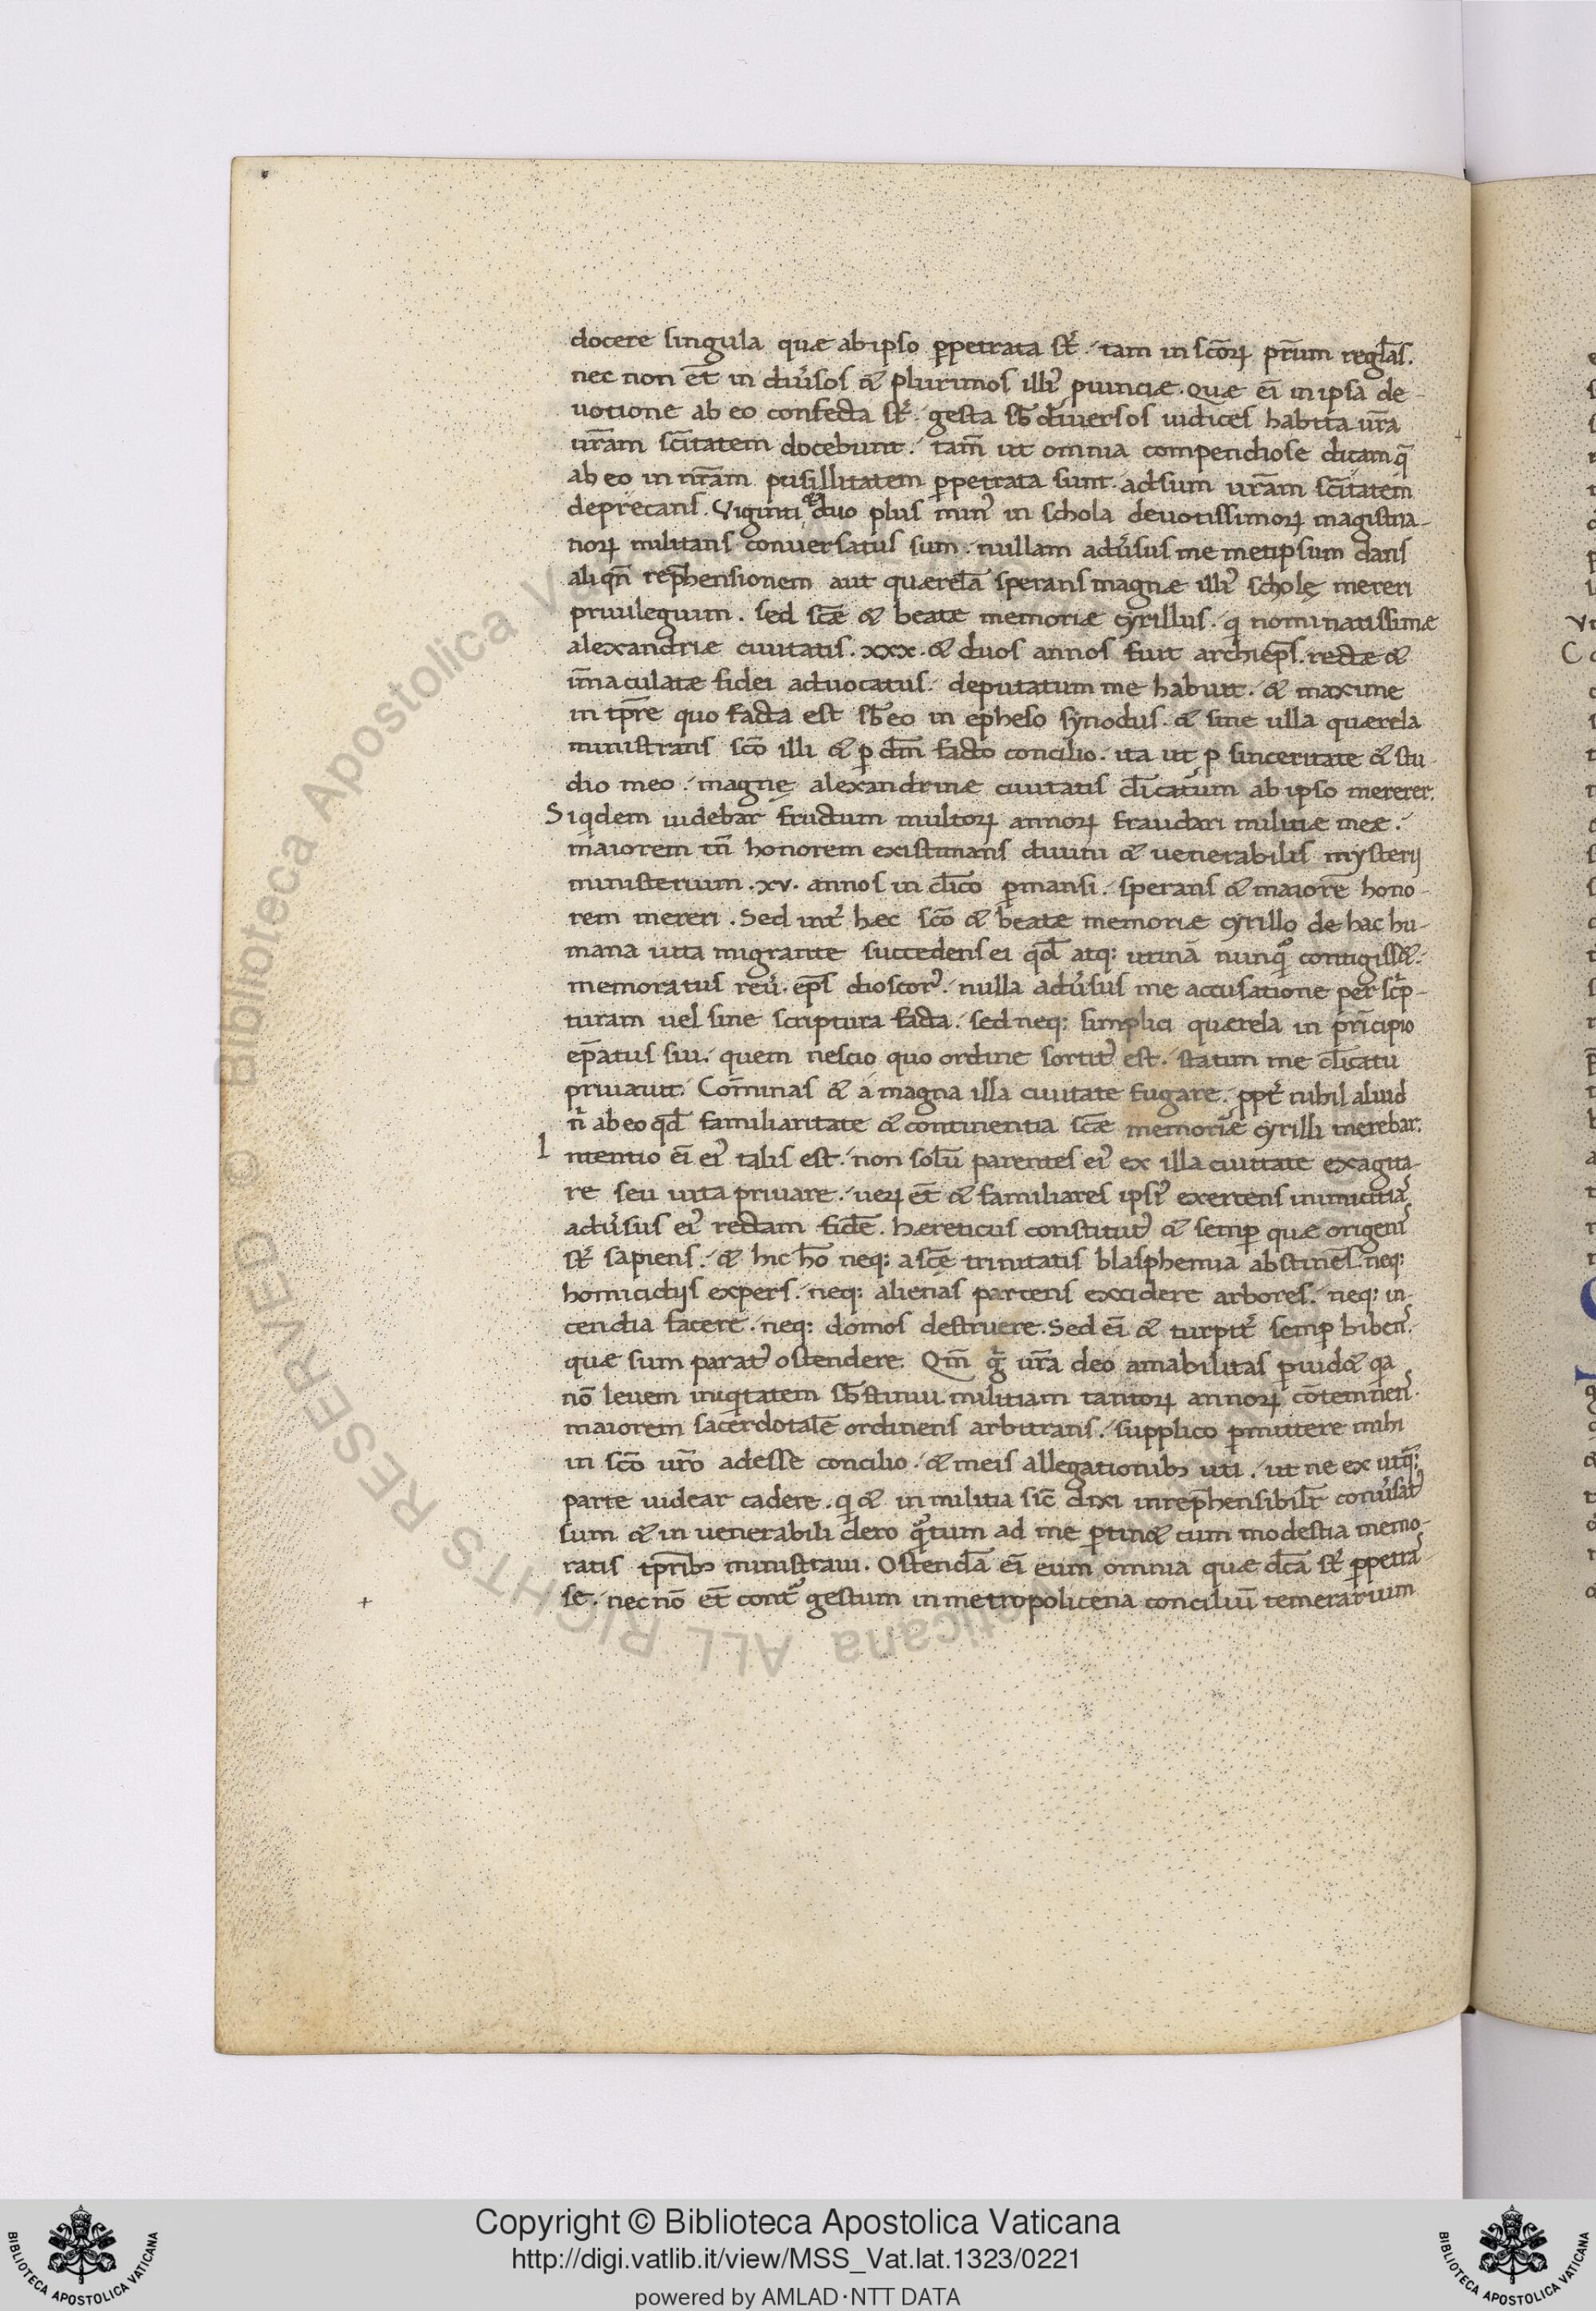 docere singula quæ ab ipso ꝑpetrata st̄. tam in scōꝝ pr̄um regl̄as.
nec non et̄ in diu̓sos & plurimos illiꝰ ꝓuinciæ. Quæ ei̅ in ipsa de-
uotione ab eo confecta st̄. gesta sb̄ diuersos iudices habita ur̄a
ur̄am sc̄itatem docebunt. tam̄ ut omnia compendiose dicam q̄
ab eo in nr̄am pusillitatem ꝑpetrata sunt. adsum ur̄am sc̄itatem
deprecans. Viginti & duo plus minꝰ in schola deuotissimoꝝ magistria-
noꝝ militans conuersatus sum. nullam adu̓sus me metipsum dans
aliqn̄ rep̄hensionem aut quærelā sperans magnæ illiꝰ scholę mereri
priuilegium. sed sc̄æ & beatæ memoriæ cyrillus. qi nominatissimæ
alexandriæ ciuitatis. xxx. & duos annos fuit archiep̄s. rectæ &
im̄aculatæ fidei aduocatus. deputatum me habuit. & maxime
in tp̄re quo facta est sb̄ eo in epheso synodus. & sine ulla quærela
ministrans scō illi & ꝑ dm̄ facto concilio. ita ut ꝓ sinceritate & stu-
dio meo. magnę alexandrinæ ciuitatis cl̄icatum ab ipso mererer.
Siqdem uidebar fructum multoꝝ annoꝝ fraudari militiæ meæ.
maiorem tn̄ honorem existimans diuini & uenerabilis mysterij
ministerium. xv. annos in cl̄ico ꝑmansi. sperans & maiorē hono-
rem mereri. Sed int̓ hæc scō & beatæ memoriæ cyrillo de hac hu-
mana uita migrante succedens ei qd̄ atq: utinā nunq̄ contigiss&.
memoratus reu̓. ep̄s dioscorꝰ. nulla adu̓sus me accusatione per scrip-
turam uel sine scriptura facta. sed neq: simplici quærela in pr̄icipio
ep̄atus sui. quem nescio quo ordine sortitꝰ est. statim me cl̄icatu
priuauit. Com̄inas & a magna illa ciuitate fugare. ꝓpt̓ nihil aliud
n̄ ab eo qd̄ familiaritate & continentia sc̄æ memoriæ cyrilli merebar.
Intentio ei̅ eiꝰ talis est. non solū parentes eiꝰ ex illa ciuitate exagita-
re seu uita priuare. ueꝝ et̄ & familiares ipsiꝰ exercens inimicitiā
adu̓sus eiꝰ rectam fidē. Hæreticus constitutꝰ & semꝑ quæ origenis
st̄ sapiens. & hic hō neq: a sc̄ę trinitatis blasphemia abstinēs. neq:
homicidijs expers. neq: alienas parcens excidere arbores. neq: in-
cendia facere. neq: domos destruere. Sed ei̅ & turpit̓ semꝑ uiuens.
quæ sum paratꝰ ostendere. Qm̄ g̊ ur̄a deo amabilitas ꝓuid& qa
nō leuem iniqtatem sb̄stinui militiam tantoꝝ annoꝝ cōtemnens.
maiorem sacerdotalē ordinens arbitrans. supplico ꝑmittere mihi
in scō ur̄o adesse concilio. & meis allegationibꝫ uti. ut ne ex utraq:
parte uidear cadere. qi & in militia sic̄ dixi inrep̄hensibilit̓ conu̓satꝰ
sum & in uenerabili clero qntum ad me ꝑtin& cum modestia memo-
ratis tp̄ribꝫ ministraui. Ostendā ei̅ eum omnia quæ dc̄a st̄ ꝑpetras-
se. nec nō et̄ cont̓ gestum in metropolicena conciliū temerarium
Copyright © Biblioteca Apostolica Vaticana
http://digi.vatlib.it/view/MSS_Vat.lat.1323/0221
powered by AMLAD·NTT DATA
BIBLIOTECA APOSTOLICA VATICANA
BIBLIOTECA APOSTOLICA VATICANA